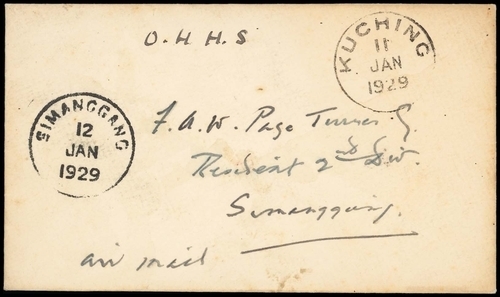 O.H.H.S
KUCHING
11
JAN
1929
SIMANGGANG
12
JAN
1929
F.A.W. Page Turner
Resident 2nd Div.
Simanggang.
air mail